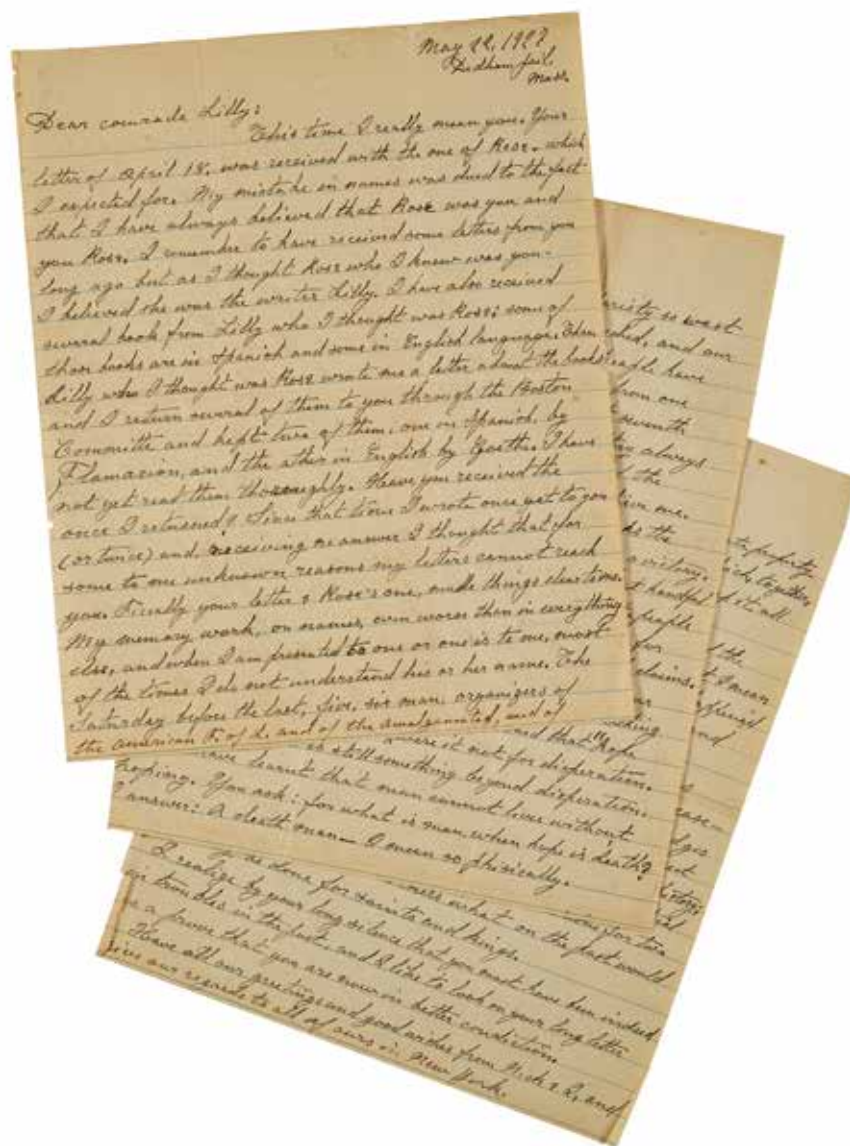 May 22, 1927
Dedham jail,
Mass.
Dear comrade Lilly:
This time I really mean you. Your
letter of April 18. was received with the one of Rose. which
I expected for. My mistake in names was dued to the fact
that I have always believed that Rose was you and
you Rose. I remember to have received some letters from you
long ago but as I thought Rose who I knew was you-
I believed she was the writer Lilly. I have also received
several book from Lilly who I thought was Rose; some of
those books are in Spanish and some in English language. Then
Lilly who I thought was Rose wrote me a letter about the books
and I return several of them to you through the Boston
Committe and kept two of them; one in Spanish, by
Flamarion, and the other in English by Goethe. I have
not yet read them thoroughly. Have you received the
once I returned? Since that time I wrote once yet to you
(or twice) and receiving no answer I thought that for
some to me unknown reasons my letters cannot reach
you. Finally your letter & Rose's one, made things clear to me.
My memory work, on names, even worse than in everything
else, and when I am presented to one or one is to me, most
of the times I do not understand his or her name. The
Saturday before the last, five, six man, organizers of
the American F. of L. and of the amalgamated, and of
so wast
and our
people have
from one
seventh
always
the
me.
the
victory.
handful
people
for
claims.
that "hope
were it not for disperation.
is still something beyond disperation.
have learnt that man cannot lives without
hoping. You ask: for what is man, when hope is death?
I answer: A death man— I mean so phisically.
property
together
it all
the
I mean
and
case—
history;
for two
what on the past would
be done for saints and kings.
I realize by your long silence that you must have been indeed
in troubles in the past and I like to look on your long letter
as a prove that you are now in better condiction.
Have all our greetings and good wishes from Nick & I, and
give our regards to all of ours in New York.